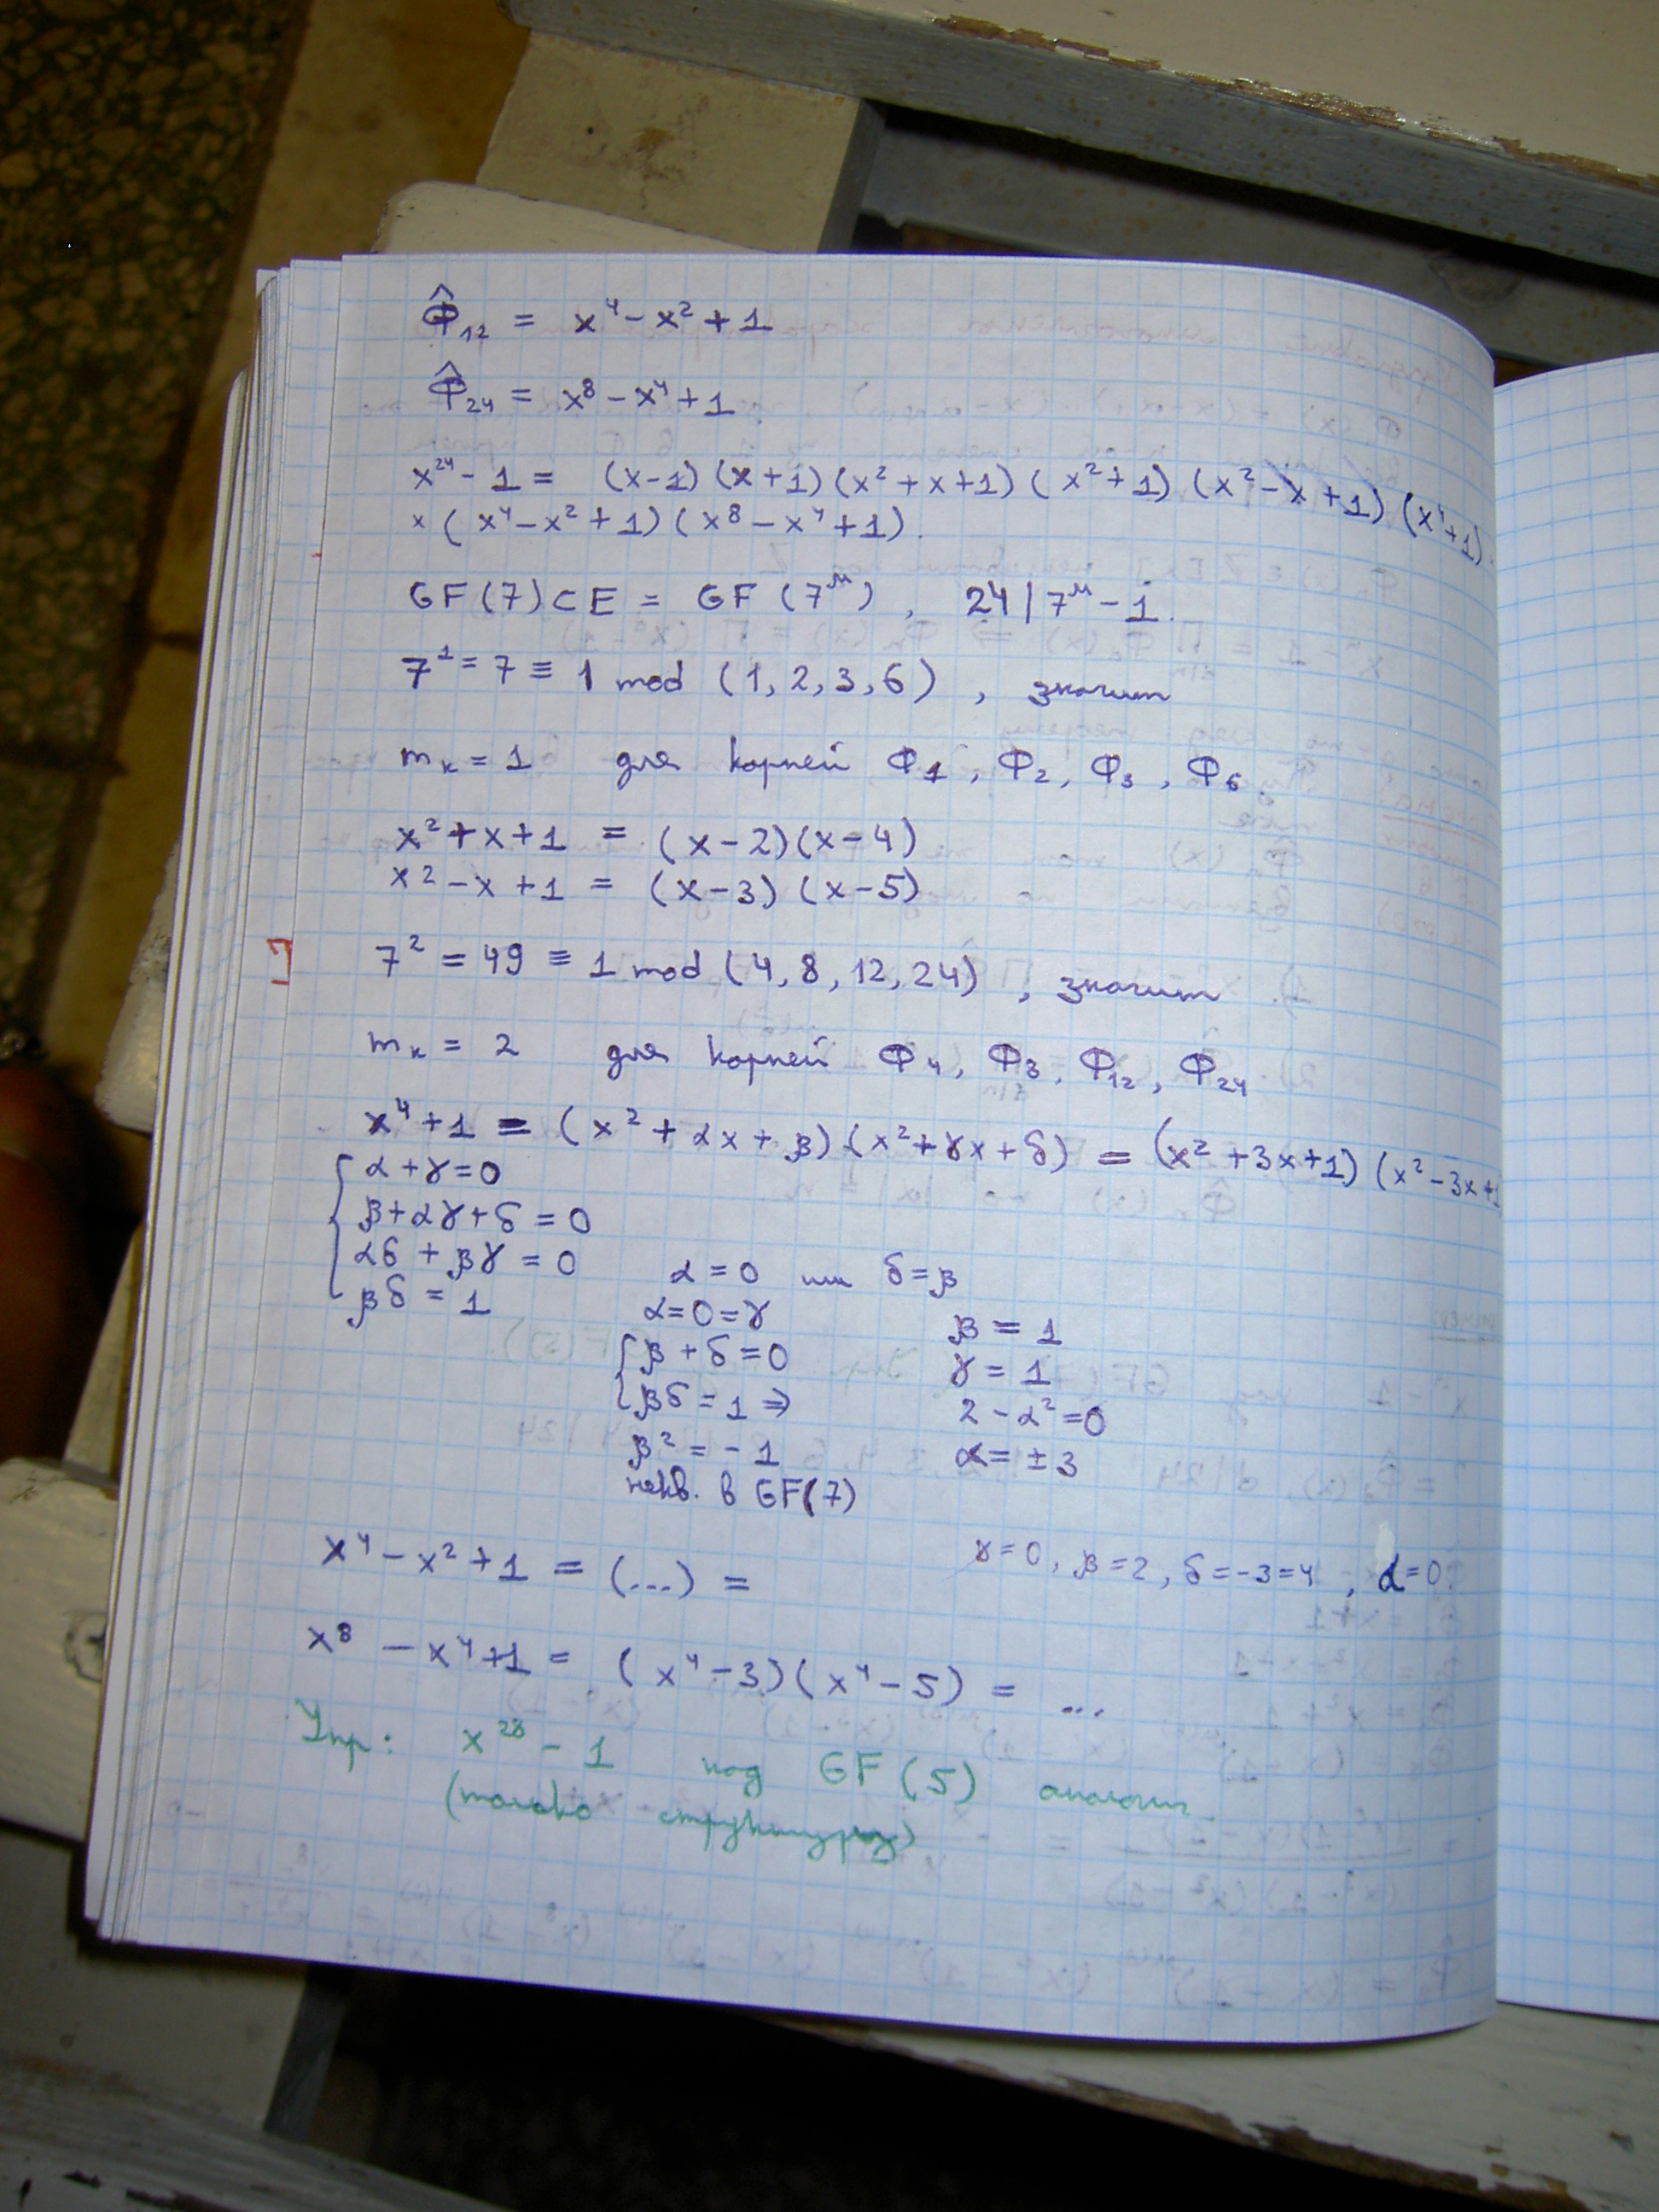 Φ̂₁₂ = x⁴ − x² + 1
Φ̂₂₄ = x⁸ − x⁴ + 1
x²⁴ − 1 = (x−1)(x+1)(x²+x+1)(x²+1)(x²−x+1)(x⁴+1)·
×(x⁴−x²+1)(x⁸−x⁴+1).
GF(7)⊂E = GF(7ᵐ), 24|7ᵐ−1.
7¹ = 7 ≡ 1 mod (1, 2, 3, 6), значит
mₖ = 1 для корней Φ₁, Φ₂, Φ₃, Φ₆.
x²+x+1 = (x−2)(x−4)
x²−x+1 = (x−3)(x−5)
7² = 49 ≡ 1 mod (4, 8, 12, 24), значит
mₖ = 2 для корней Φ₄, Φ₈, Φ₁₂, Φ₂₄
x⁴+1 = (x²+αx+β)·(x²+γx+δ) = (x²+3x+1)(x²−3x+1)
α+γ=0
β+αγ+δ=0
αδ+βγ=0
βδ=1
α=0 или δ=β
α=0=γ
β+δ=0
βδ=1 ⇒
β²=−1
некв. в GF(7)
β=1
γ=1
2−α²=0
α=±3
x⁴−x²+1 = (...) = γ=0, β=2, δ=−3=4, α=0.
x⁸−x⁴+1 = (x⁴−3)(x⁴−5) = ...
Упр: x²⁸−1 над GF(5) аналогич.
(только структуру)